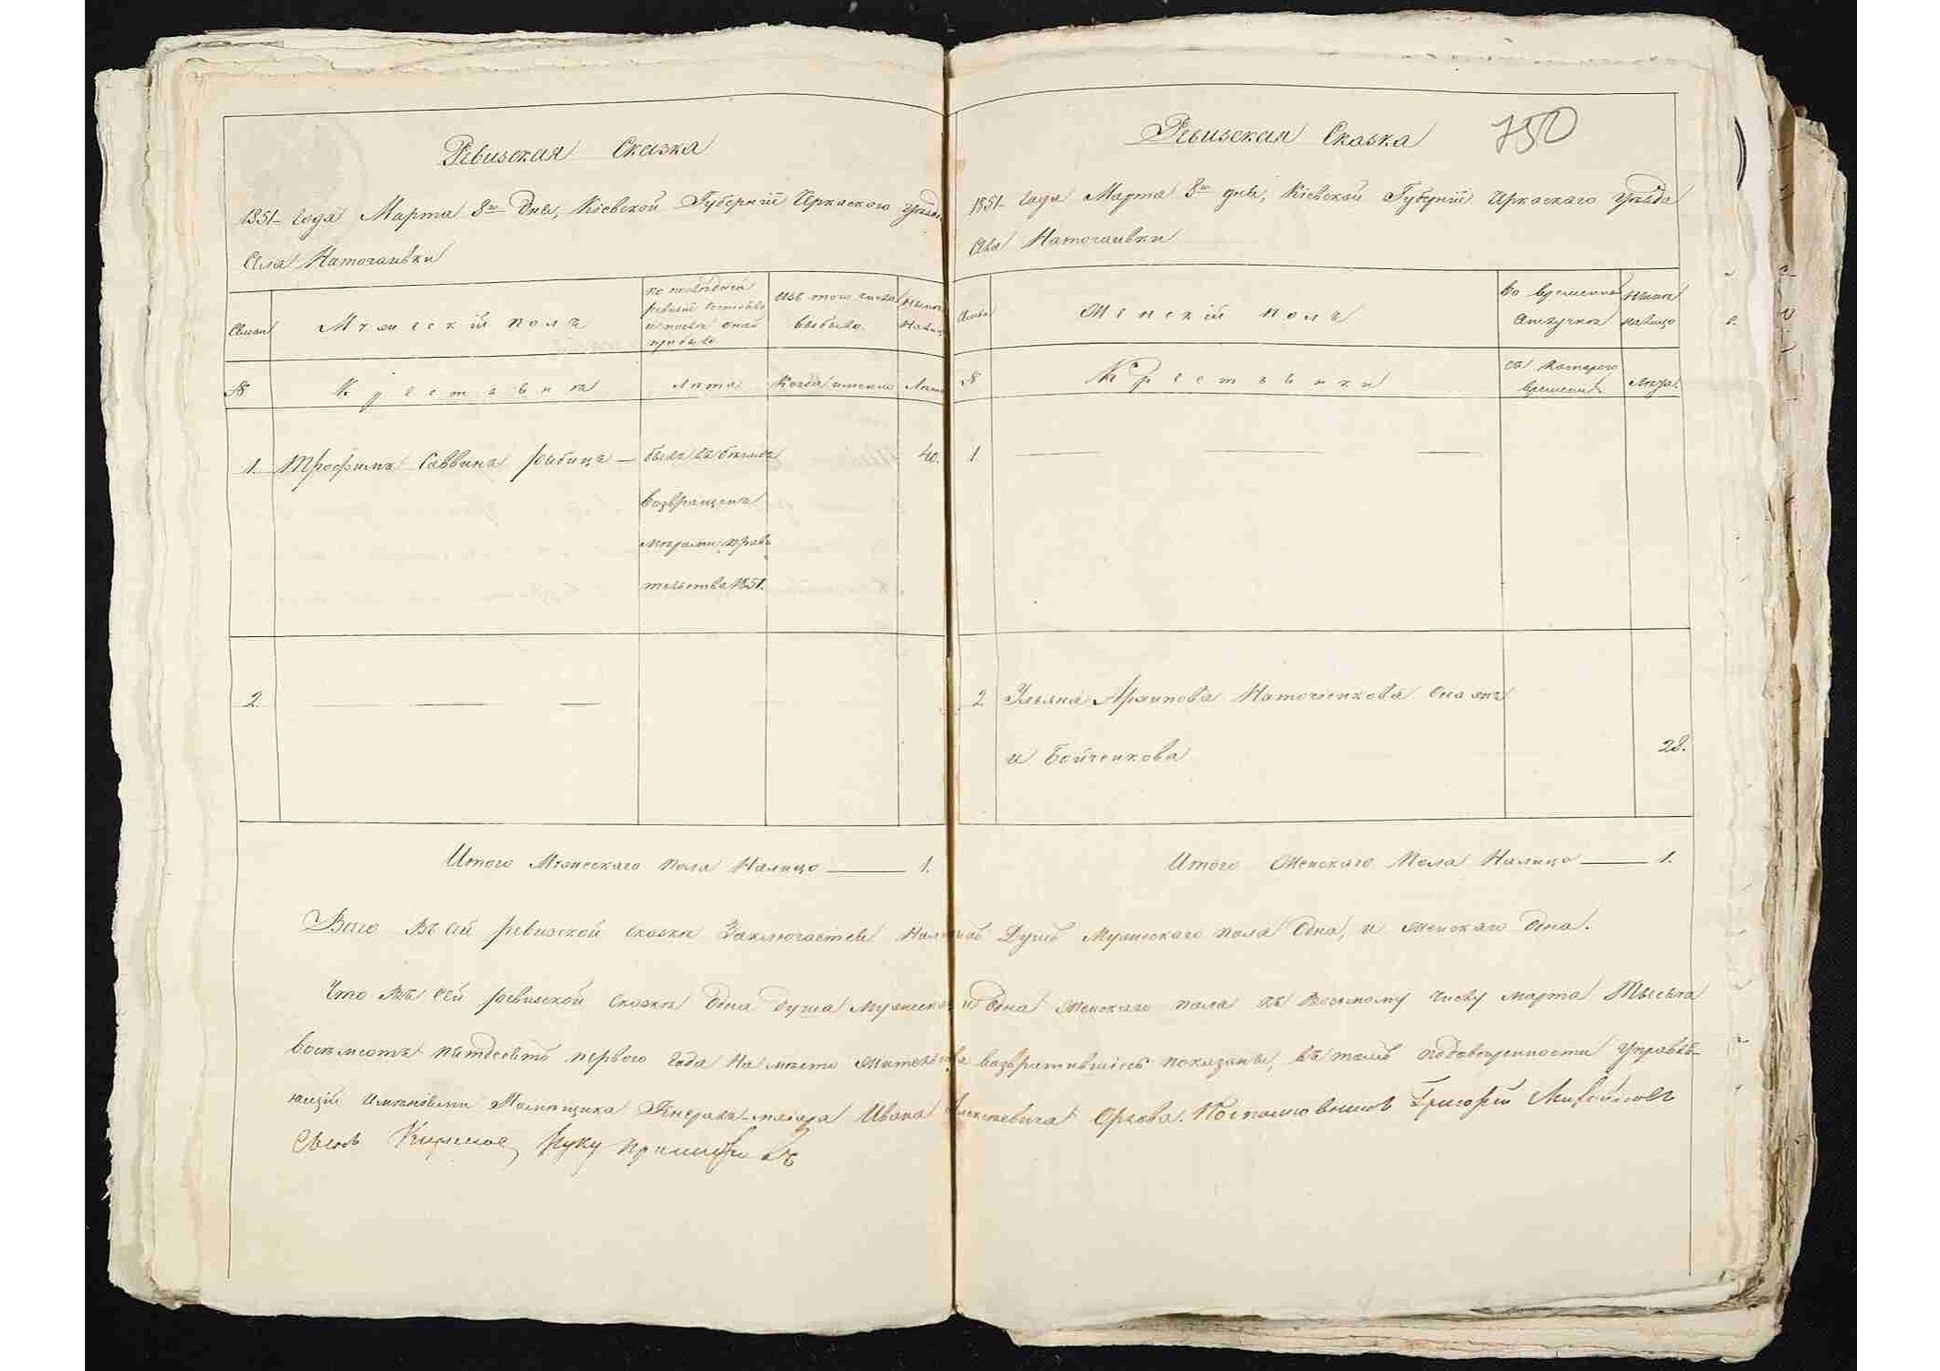 Ревизская Сказка
1851 года Марта 8го дня, Кіевской Губерніи Черкаского уѣзда
Села Наточаивки
Семьи
Мужескій полъ
по послѣдней ревизіи состояло и послѣ оной прибыло
Изъ того числа выбыло
Нынѣ на лицо
№
Крестьяне
Лѣта
Когда именно
Лѣта
1. Трофимъ Саввинъ — былъ въ бѣгахъ 40.
возвращенъ
мѣрами прави
тельства 1851.
2.
Итого Мужескаго пола Налицо — 1.
750
Ревизская Сказка
1851 года Марта 8го дня, Кіевской Губерніи Черкаскаго уѣзда
Села Наточаивки
Семьи
Женскій полъ
Во временной отлучкѣ
Нынѣ на лицо
№
Крестьянки
съ котораго времени
Лѣта.
1
2 Ульяна Архипова Наточіенкова она жъ
и Бойченкова 28.
Итого Женскаго Пола Налицо — 1.
Всего въ сей ревизской сказкѣ Заключается Наличныхъ Душъ Мужескаго пола Одна, и женскаго одна.
Что въ сей ревизской сказкѣ одна душа мужеска и одна женскаго пола къ восьмому числу марта тысяча
восемсотъ пятдесятъ первого года на мѣсто жительства возвратившіесь показаны, въ томъ подовѣренности Управля-
ющій имѣніемъ Помѣщика Генералъ-маіора Ивана Алексѣевича Орлова. Григорій Михайловъ
Сынъ руку приложилъ